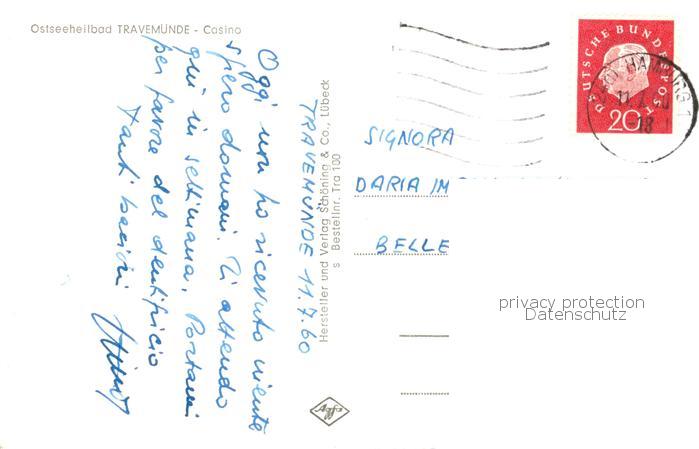 Ostseeheilbad TRAVEMÜNDE - Casino
Oggi non ho ricevuto niente
spero domani. Ti attendo
qui in settimana. Portami
per favore del dentifricio
Tanti bacioni
TRAVEMÜNDE 11.7.60
Hersteller und Verlag Schöning & Co., Lübeck
s Bestellnr. Tra 100
Agfa
DEUTSCHE BUNDESPOST
20
HAMBURG 1
-18
SIGNORA
DARIA IM
BELLE
privacy protection
Datenschutz